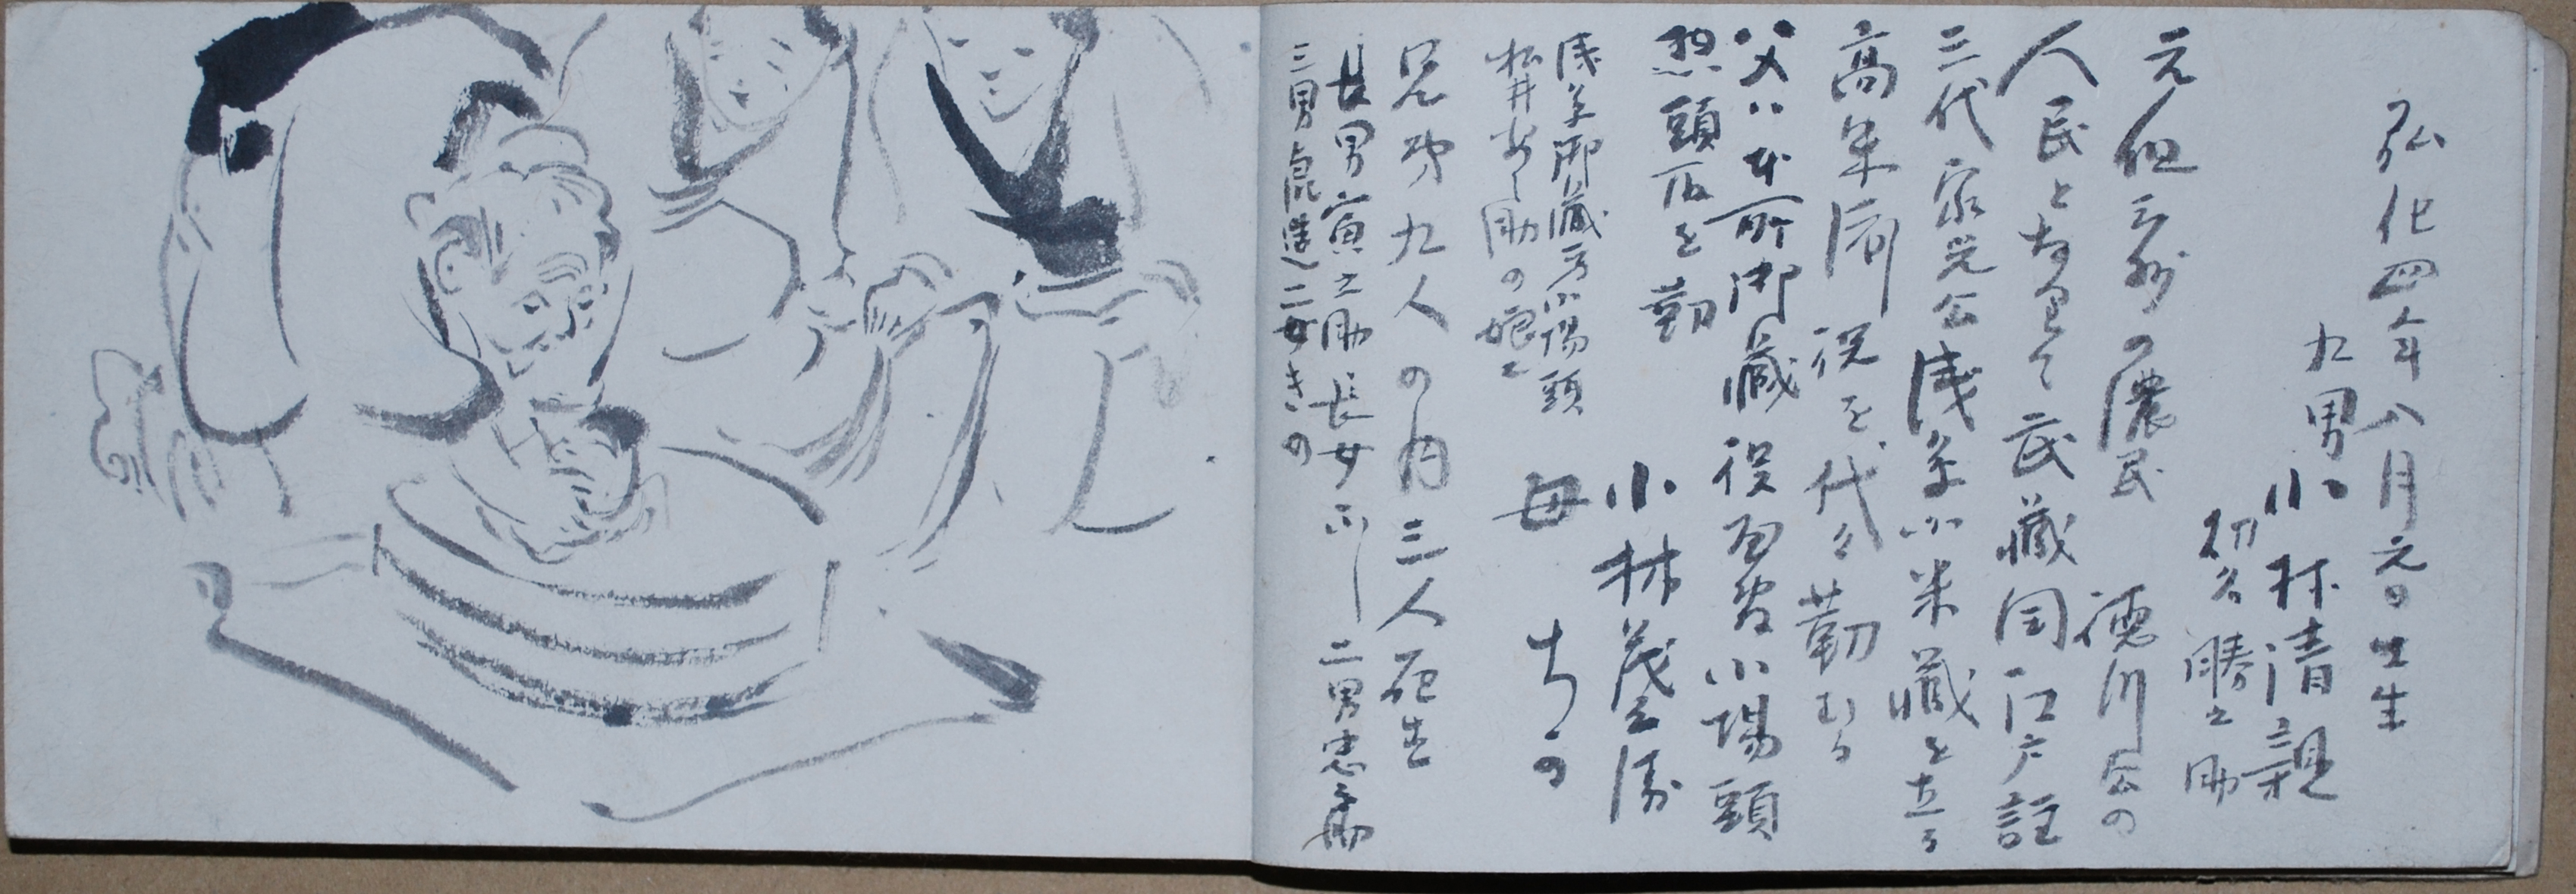 弘化四年八月元日出生
九男小林清親
初名勝之助
元但三州の農民 徳川公の
人民となりて武藏国江戸詰
三代家光公浅草小米藏を立る
高年同役を代々勤むる
父ハ本所御藏役 小揚頭
頭取を勤 小林茂兵衛
浅草御藏方小揚頭
松井安之助の娘 母 ちか
兄弟九人の内三人死生
長男寅之助長女 二男忠三郎
三男虎造 二女きの